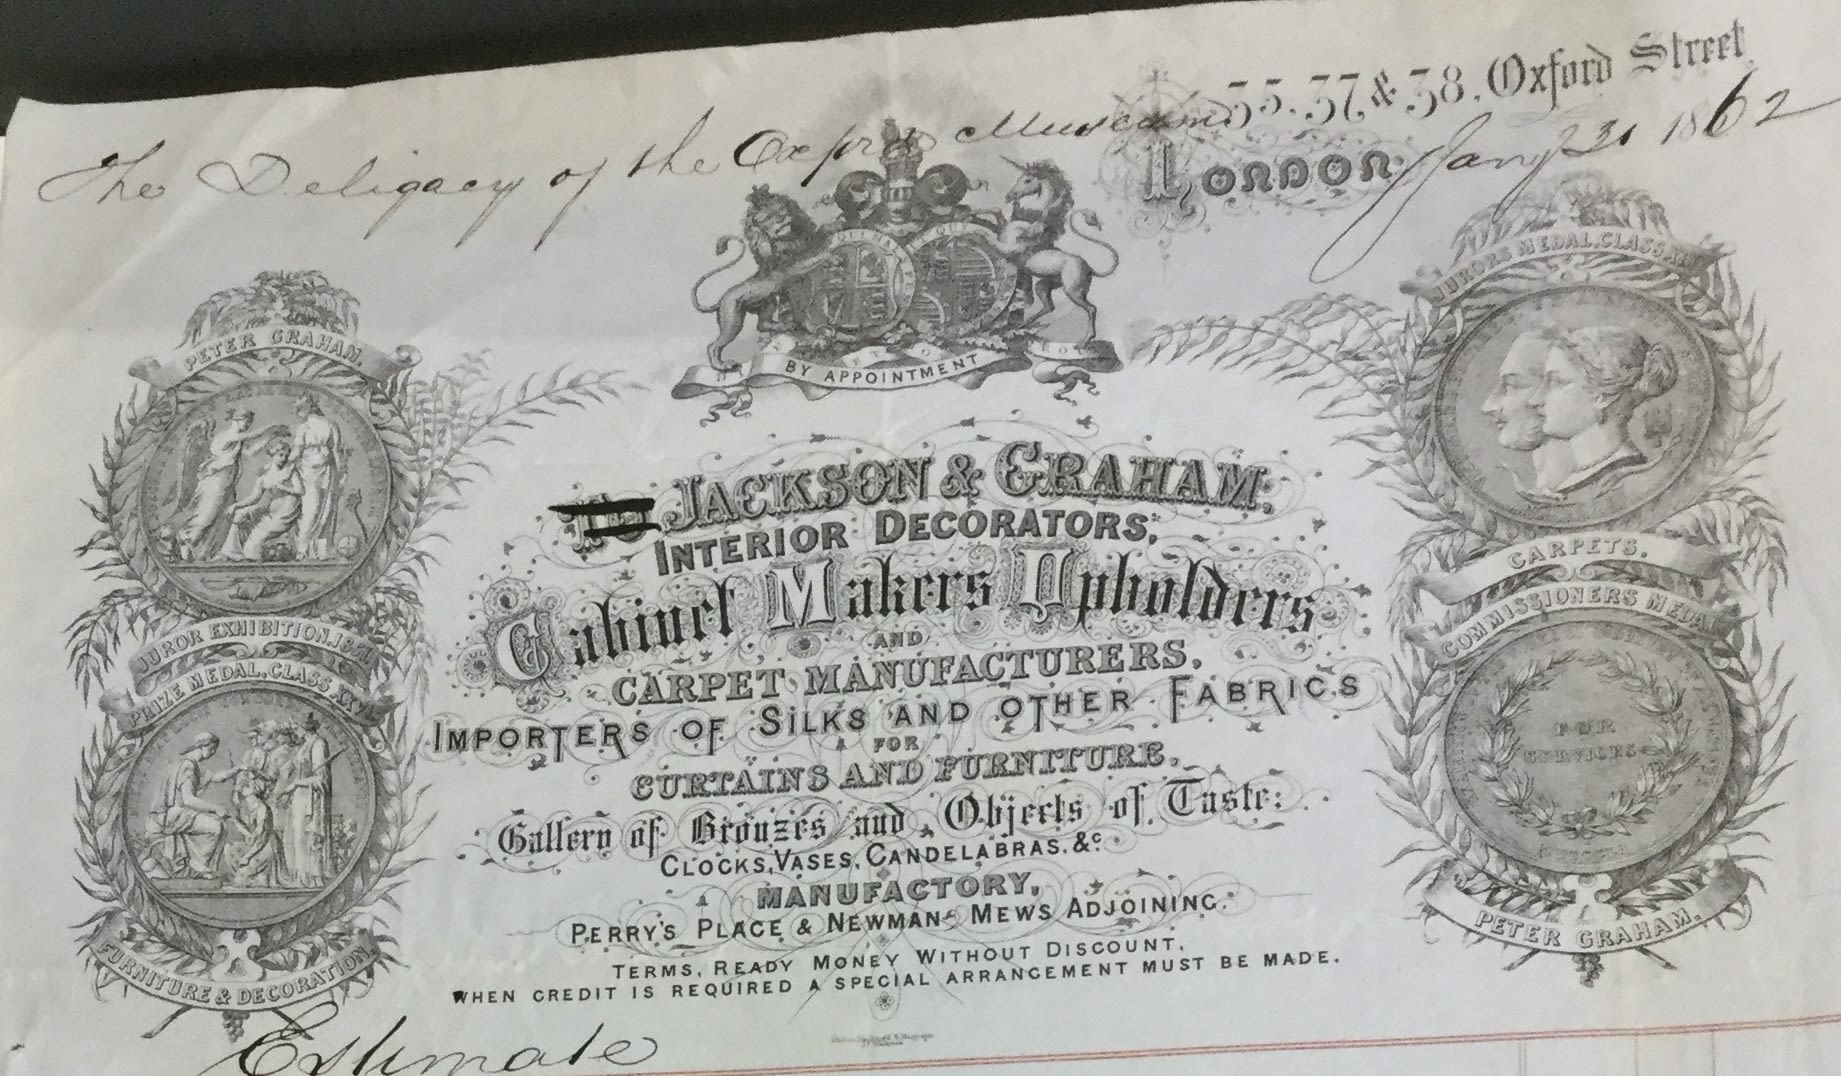 35. 37. & 38. Oxford Street,
The Deligacy of the Oxford Museum
London Jany 31 1862
BY APPOINTMENT
PETER GRAHAM.
JUROR EXHIBITION. 1851
PRIZE MEDAL. CLASS XXVI
FURNITURE & DECORATION.
JURORS MEDAL. CLASS
CARPETS.
COMMISSIONERS MEDAL
FOR
SERVICES
PETER GRAHAM.
To JACKSON & GRAHAM,
INTERIOR DECORATORS,
Cabinet Makers Upholders
AND
CARPET MANUFACTURERS,
IMPORTERS OF SILKS AND OTHER FABRICS
FOR
CURTAINS AND FURNITURE.
Gallery of Bronzes and Objects of Taste:
CLOCKS, VASES, CANDELABRAS, &c.
MANUFACTORY,
PERRY'S PLACE & NEWMAN MEWS ADJOINING.
TERMS, READY MONEY WITHOUT DISCOUNT,
WHEN CREDIT IS REQUIRED A SPECIAL ARRANGEMENT MUST BE MADE.
Estimate